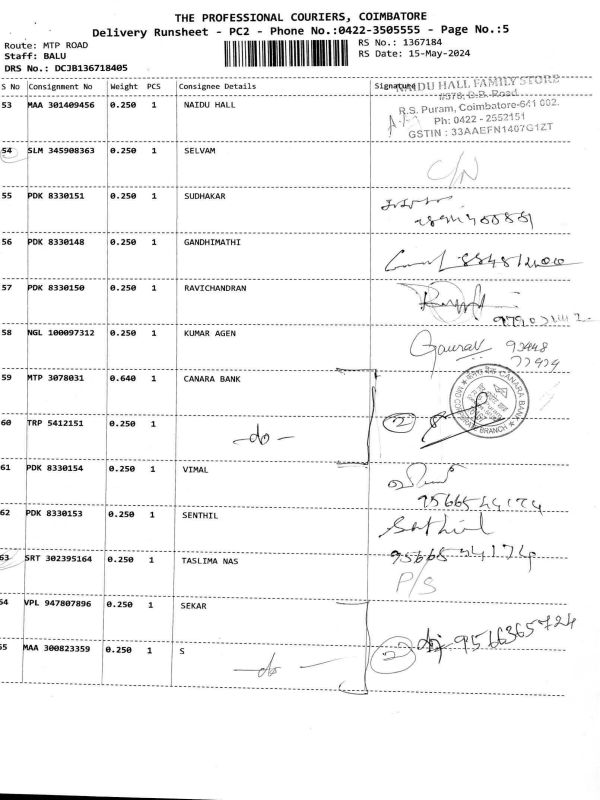 THE PROFESSIONAL COURIERS, COIMBATORE
Delivery Runsheet - PC2 - Phone No.:0422-3505555 - Page No.:5
Route: MTP ROAD
RS No.: 1367184
Staff: BALU
RS Date: 15-May-2024
DRS No.: DCJB136718405
S No Consignment No Weight PCS Consignee Details Signature
NAIDU HALL FAMILY STORE
#378, D.B. Road
R.S. Puram, Coimbatore-641 002.
Ph: 0422 - 2552151
GSTIN : 33AAEFN1407G1ZT
53 MAA 301409456 0.250 1 NAIDU HALL
54 SLM 345908363 0.250 1 SELVAM C/N
55 PDK 8330151 0.250 1 SUDHAKAR
56 PDK 8330148 0.250 1 GANDHIMATHI
57 PDK 8330150 0.250 1 RAVICHANDRAN
58 NGL 100097312 0.250 1 KUMAR AGEN Gaurav
59 MTP 3078031 0.640 1 CANARA BANK
CANARA BANK
BRANCH
60 TRP 5412151 0.250 1 -do- 2
61 PDK 8330154 0.250 1 VIMAL
9566524174
62 PDK 8330153 0.250 1 SENTHIL Senthil
9566524174
63 SRT 302395164 0.250 1 TASLIMA NAS P/S
64 VPL 947807896 0.250 1 SEKAR
9566365724
65 MAA 300823359 0.250 1 S -do- 2